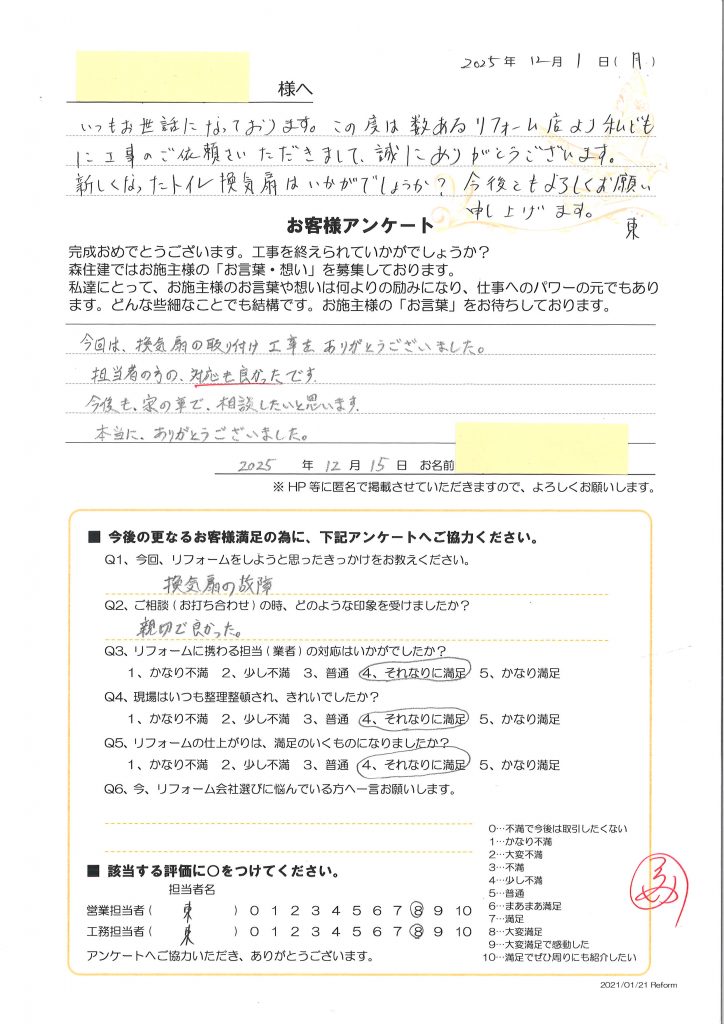 2025年 12月 1日(月)
様へ
いつもお世話になっております。この度は数あるリフォーム店より私ども
に工事のご依頼をいただきまして、誠にありがとうございます。
新しくなったトイレ換気扇はいかがでしょうか？今後ともよろしくお願い
申し上げます。
東
お客様アンケート
完成おめでとうございます。工事を終えられていかがでしょうか？
森住建ではお施主様の「お言葉・想い」を募集しております。
私達にとって、お施主様のお言葉や想いは何よりの励みになり、仕事へのパワーの元でもあり
ます。どんな些細なことでも結構です。お施主様の「お言葉」をお待ちしております。
今回は、換気扇の取り付け工事をありがとうございました。
担当者の方の、対応も良かったです。
今後も、家の事で、相談したいと思います。
本当に、ありがとうございました。
2025 年 12 月 15 日 お名前
※HP等に匿名で掲載させていただきますので、よろしくお願いします。
■ 今後の更なるお客様満足の為に、下記アンケートへご協力ください。
Q1、今回、リフォームをしようと思ったきっかけをお教えください。
換気扇の故障
Q2、ご相談(お打ち合わせ)の時、どのような印象を受けましたか？
親切で良かった。
Q3、リフォームに携わる担当(業者)の対応はいかがでしたか？
1、かなり不満 2、少し不満 3、普通 4、それなりに満足 5、かなり満足
Q4、現場はいつも整理整頓され、きれいでしたか？
1、かなり不満 2、少し不満 3、普通 4、それなりに満足 5、かなり満足
Q5、リフォームの仕上がりは、満足のいくものになりましたか？
1、かなり不満 2、少し不満 3、普通 4、それなりに満足 5、かなり満足
Q6、今、リフォーム会社選びに悩んでいる方へ一言お願いします。
0…不満で今後は取引したくない
1…かなり不満
2…大変不満
3…不満
4…少し不満
5…普通
6…まあまあ満足
7…満足
8…大変満足
9…大変満足で感動した
10…満足でぜひ周りにも紹介したい
■ 該当する評価に〇をつけてください。
担当者名
営業担当者( 東 ) 0 1 2 3 4 5 6 7 8 9 10
工務担当者( 東 ) 0 1 2 3 4 5 6 7 8 9 10
アンケートへご協力いただき、ありがとうございます。
2021/01/21 Reform